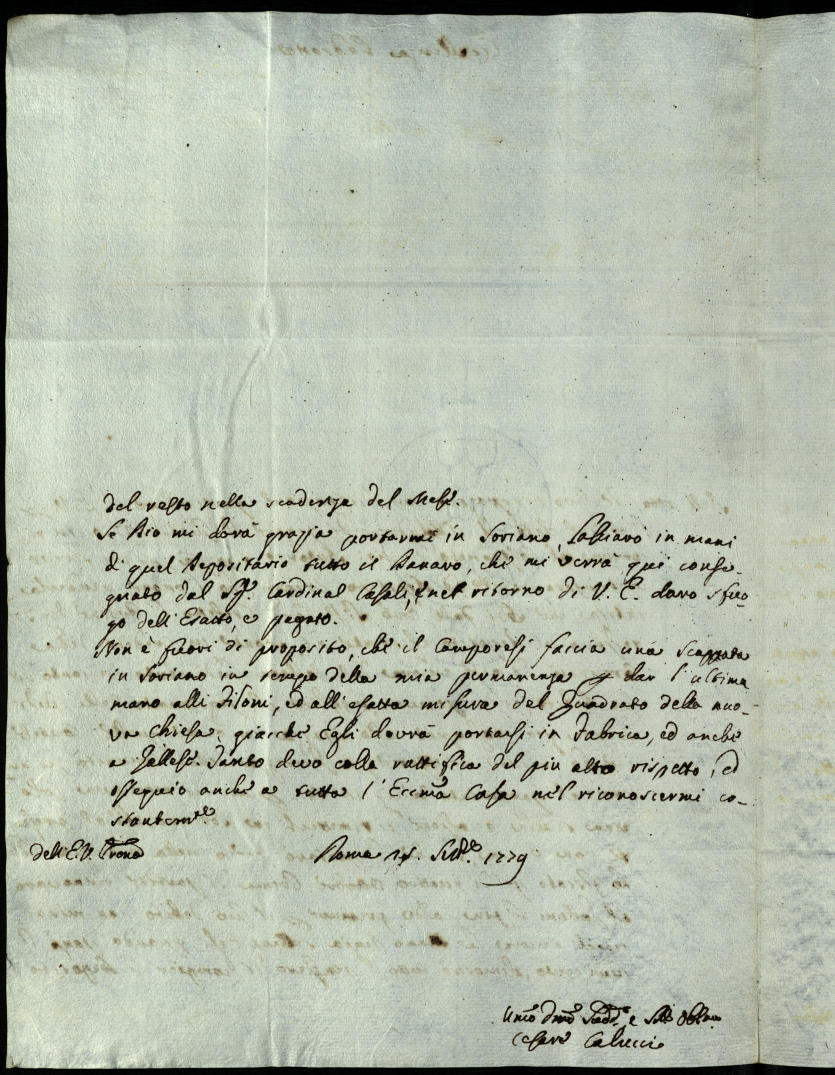 del resto nella scadenza del Mese.
Se Dio mi darà grazia portarmi in Soriano, lasciarò in mani
di quel Depositario tutto il Danaro, che mi verrà qui conse-
gnato dal Sig.r Cardinal Casali, e nel ritorno di V. E. darò sfuo-
go dell'Esatto, e pagato.
Non è fuori di proposito, che il Camporesi faccia una scappata
in Soriano in tempo della mia permanenza p dar l'ultima
mano alli Filoni, ed all'esatta misura del Quadrato della nuo-
va Chiesa, giacchè Egli dovrà portarsi in Fabrica, ed anche
a Gallese. Tanto devo colla rattifica del più alto rispetto, ed
ossequio anche a tutta l'Eccma Casa nel riconoscermi co-
stantem.e
dell'E. V. Prona
Roma Sett.e 1779
Umo Dmo e Obbmo
Cesare Calucci